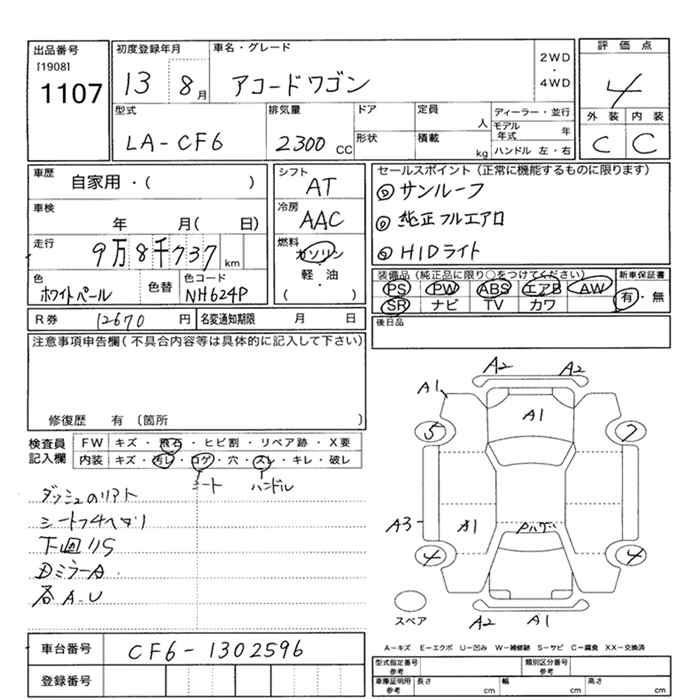 出品番号
[1908]
1107
初度登録年月
13 8月
車名・グレード
アコードワゴン
2WD
・
4WD
評価点
4
外装 内装
C C
型式
LA-CF6
排気量
2300 CC
ドア
形状
定員
人
積載
kg
ディーラー・並行
モデル年式 年
ハンドル 左・右
車歴
自家用・( )
車検
年 月( 日)
走行
9万8千737 km
色
ホワイトパール
色替
色コード
NH624P
シフト
AT
冷房
AAC
燃料
ガソリン
・
軽・油
( )
セールスポイント(正常に機能するものに限ります)
① サンルーフ
② 純正フルエアロ
③ HIDライト
装備品(純正品に限り○をつけてください)
PS PW ABS エアB AW
SR ナビ TV カワ
新車保証書
有・無
R券 12670 円
名変通知期限 月 日
後日品
注意事項申告欄(不具合内容等は具体的に記入して下さい)
修復歴 有 〔箇所 〕
検査員記入欄
FW キズ・飛石・ヒビ割・リペア跡・X要
内装 キズ・汚レ・コゲ・穴・スレ・キレ・破レ
シート ハンドル
シートフ4ヘタリ
下回りS
DミラーA
各A-U
A2 A2
A1
A1
5 7
A3 A1
4 4
スペア
A2 A1
A-キズ E-エクボ U-凹み W-補修跡 S-サビ C-腐食 XX-交換済
車台番号
CF6-1302596
登録番号
型式指定番号
参考
類別区分番号
参考
車庫証明用
参考
長さ cm
幅 cm
高さ cm